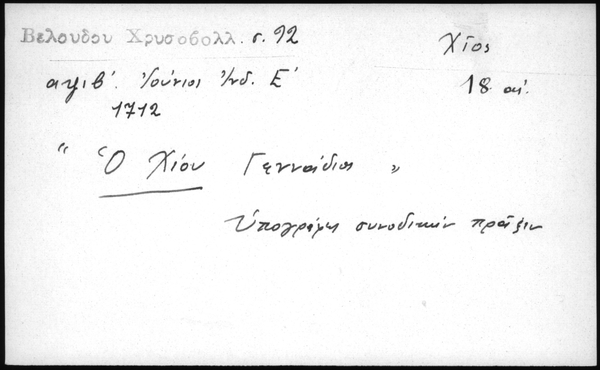 Βελουδου Χρυσοβολλ. σ. 92
Χῖος
αψιβ´. Ἰούνιος Ἰνδ. Ε´
18 αἰ.
1712
" Ὁ Χίου Γεννάδιος "
Ὑπογράφει συνοδικὴν πρᾶξιν